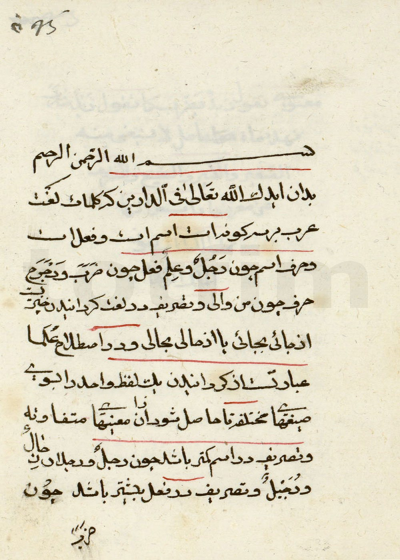 ٩٥
بسم الله الرحمن الرحيم
بدان ايدك الله تعالى فى الدارين كه كلمات لغت
عرب بر سه كونه است اسم است و فعل است
و حرف اسم چون رَجُلٌ وعِلْمٌ فعل چون ضَرَبَ و دَحْرَجَ
حرف چون من و الى و تصريف در لغت كردانيدن چيزيست
از جائى بجائى يا از حالى بحالى و در اصطلاح علما
عبارتست از كردانيدن يك لفظ واحد را بسوى
صيغهاى مختلفه تا حاصل شود از آن معنيهاى متفاوته
و تصريف در اسم كمتر باشد چون رجلٌ و رجلان رجالٌ
و رُجَيْلٌ و تصريف در فعل بيشتر باشد چون
ضرب